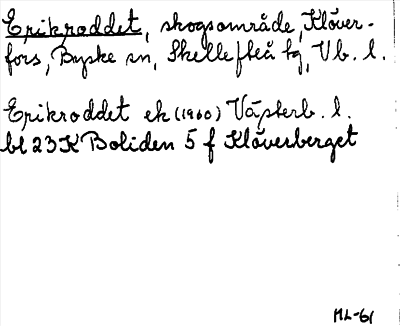 Erikroddet, skogsområde, Klöver-
fors, Byske sn, Skellefteå tg, Vb. l.
Erikroddet ek (1960) Västerb. l.
bl 23 K Boliden 5 f Klöverberget
HL-61